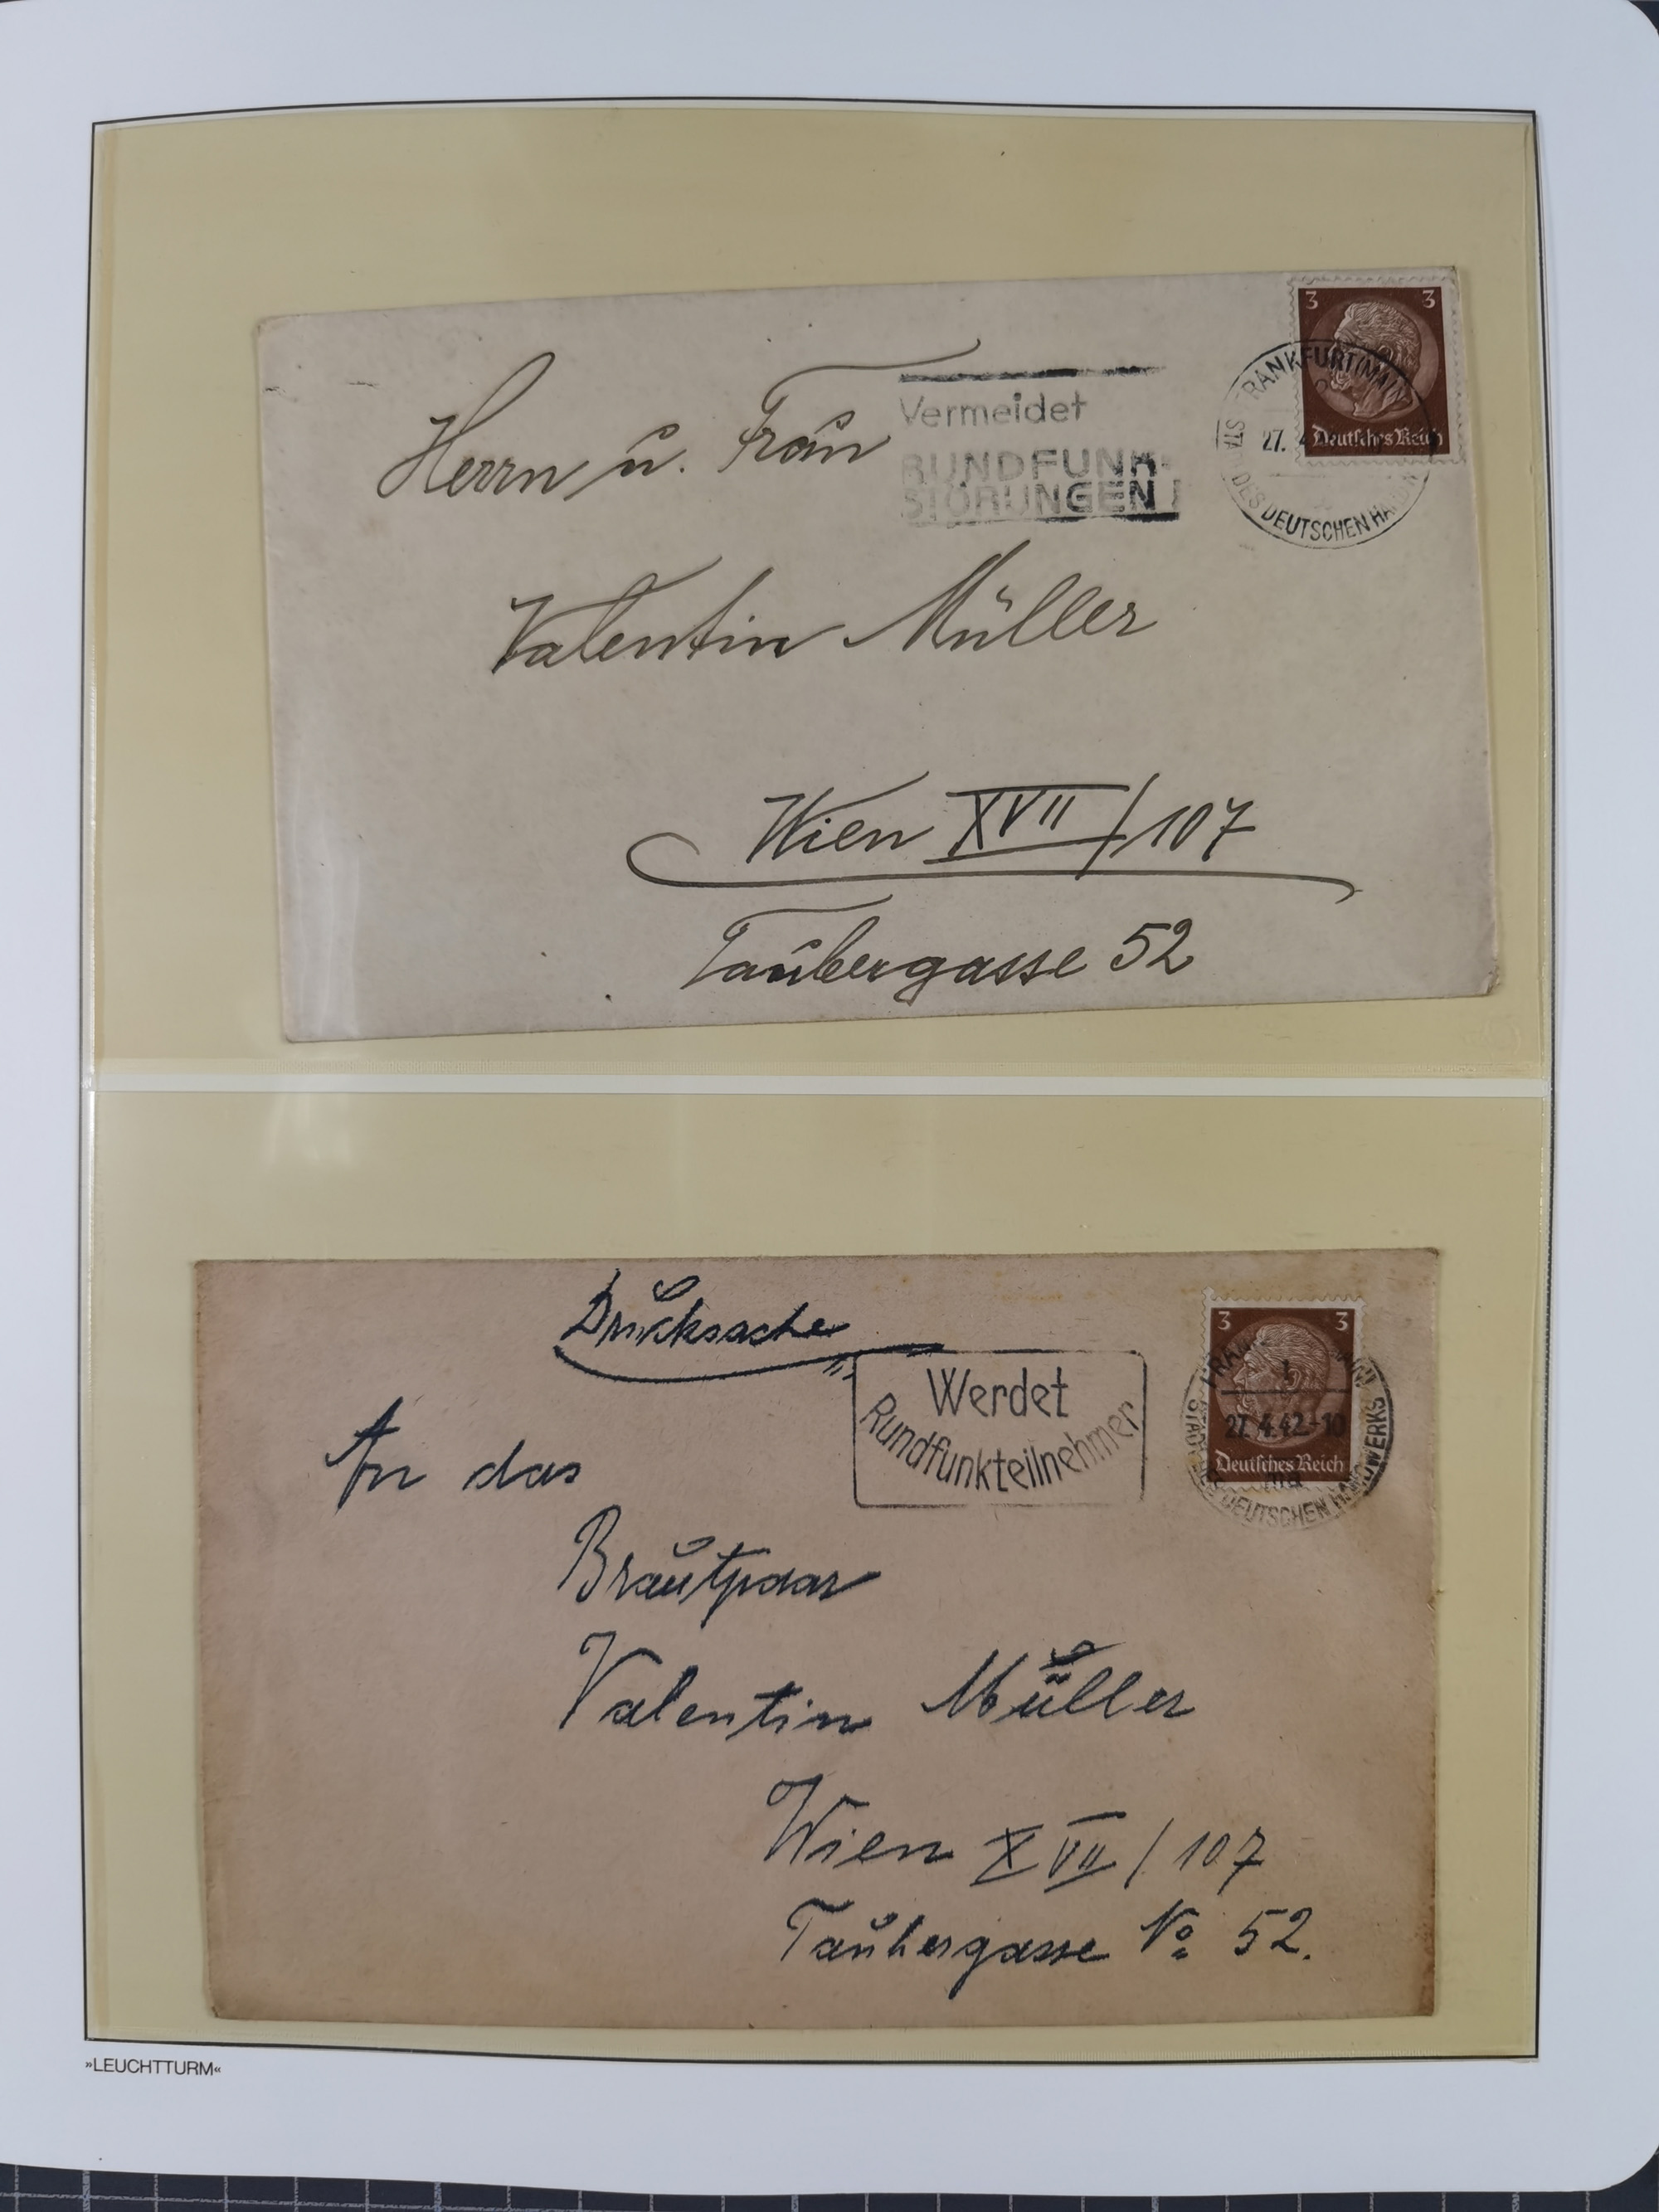 3 3
Deutsches Reich
FRANKFURT (MAIN)
27. 4
DES DEUTSCHEN
Vermeidet
RUNDFUNK-
STÖRUNGEN
Herrn u. Frau
Valentin Müller
Wien XVII/107
Taubergasse 52
3 3
Deutsches Reich
27.4.42-10
STADT DES DEUTSCHEN HANDWERKS
Werdet
Rundfunkteilnehmer
Drucksache
An das
Brautpaar
Valentin Müller
Wien XVII/107
Taubergasse No 52.
»LEUCHTTURM«